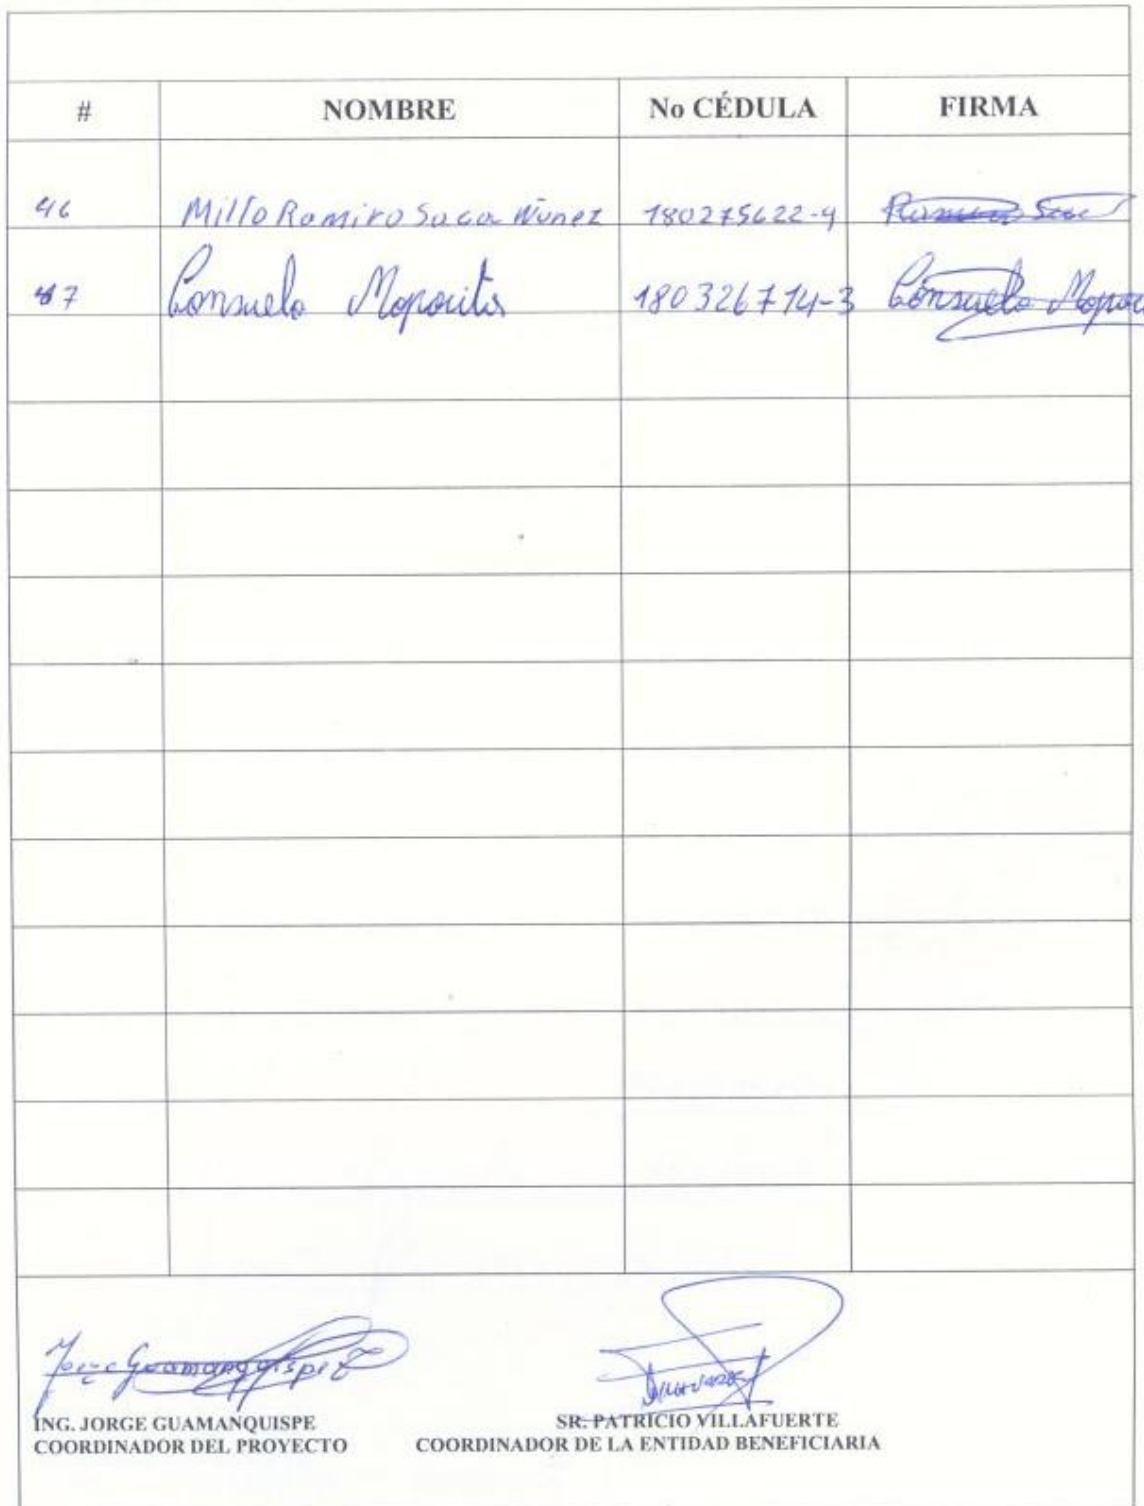 # NOMBRE No CÉDULA FIRMA
46 Millo Ramiro Saca Núnez 180275622-9 Ramiro Saca
47 Consuelo Moporita 180326714-3 Consuelo Mopori
Jorge Guamanquispe
ING. JORGE GUAMANQUISPE SR. PATRICIO VILLAFUERTE
COORDINADOR DEL PROYECTO COORDINADOR DE LA ENTIDAD BENEFICIARIA